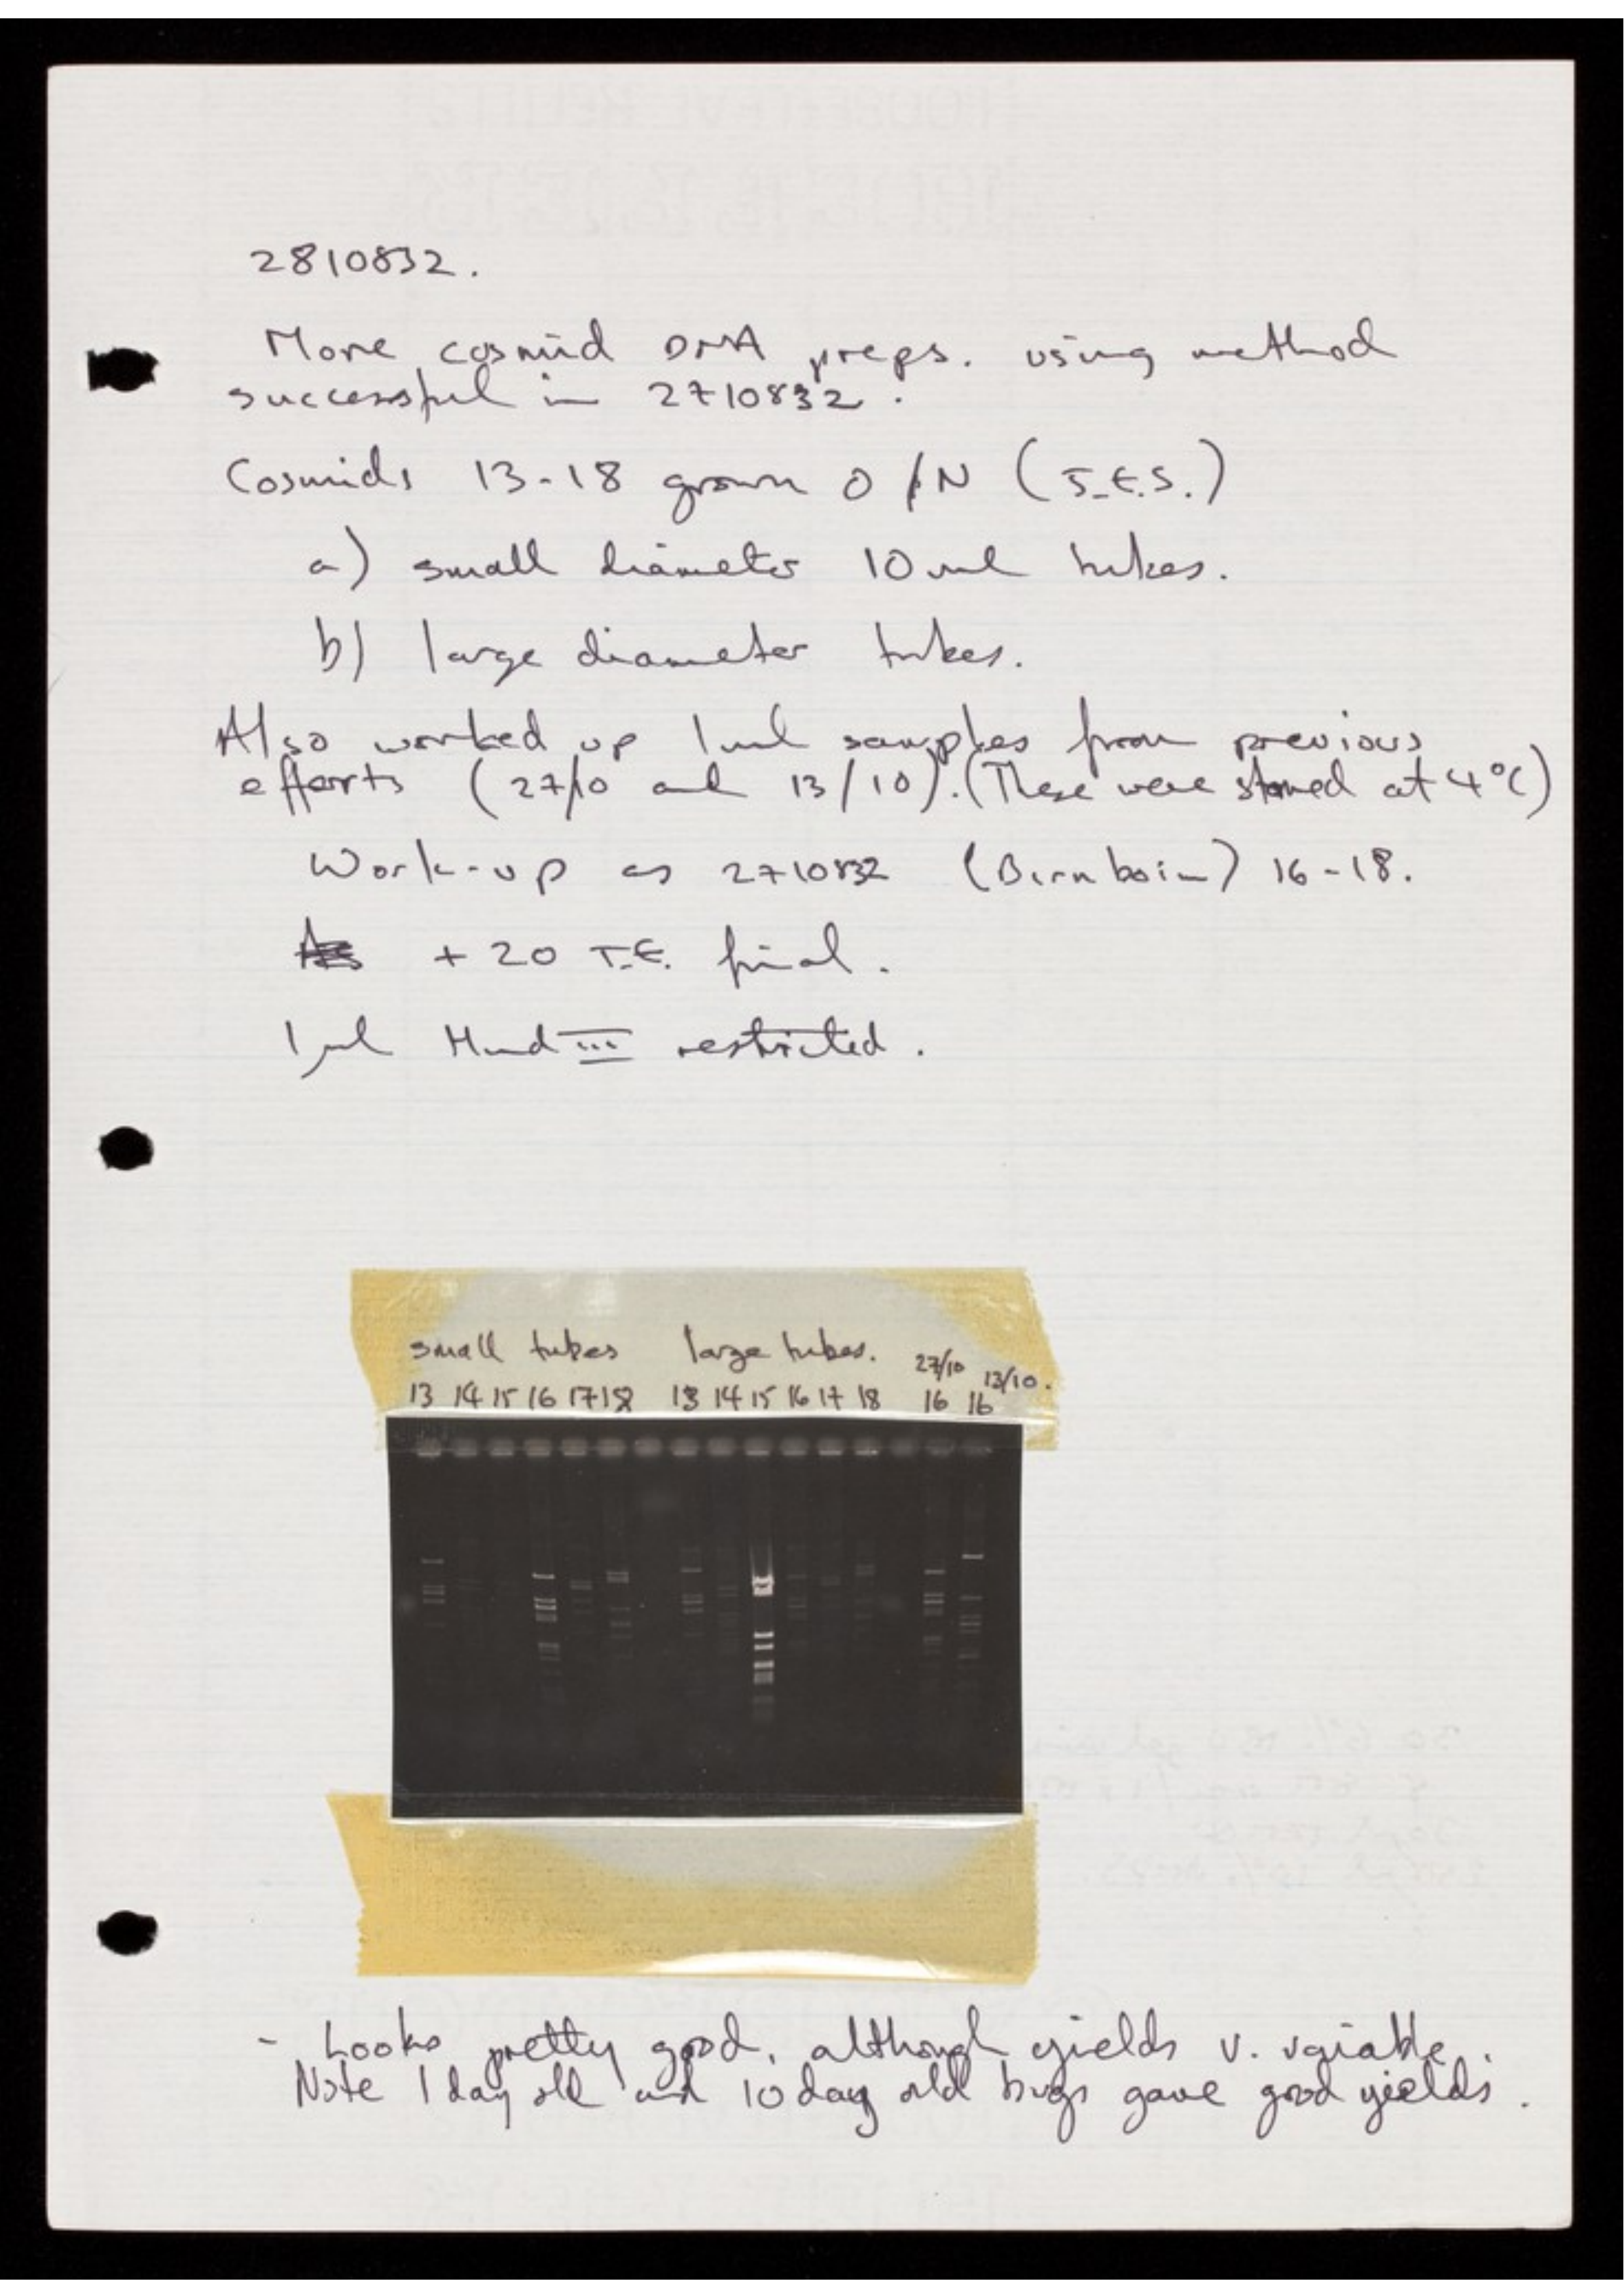 2810832.
More cosmid DNA preps. using method
successful in 2710832.
Cosmids 13-18 grown O/N (J.E.S.)
a) small diameter 10 ml tubes.
b) large diameter tubes.
Also worked up 1ml samples from previous
efforts (27/10 and 13/10). (These were stored at 4°C)
Work-up as 2710832 (Birnboim) 16-18.
+ 20 T.E. final.
1μl Hind III restricted.
small tubes large tubes. 27/10 13/10.
13 14 15 16 17 18 13 14 15 16 17 18 16 16
- Looks pretty good, although yields v. variable.
Note 1 day old and 10 day old bugs gave good yields.